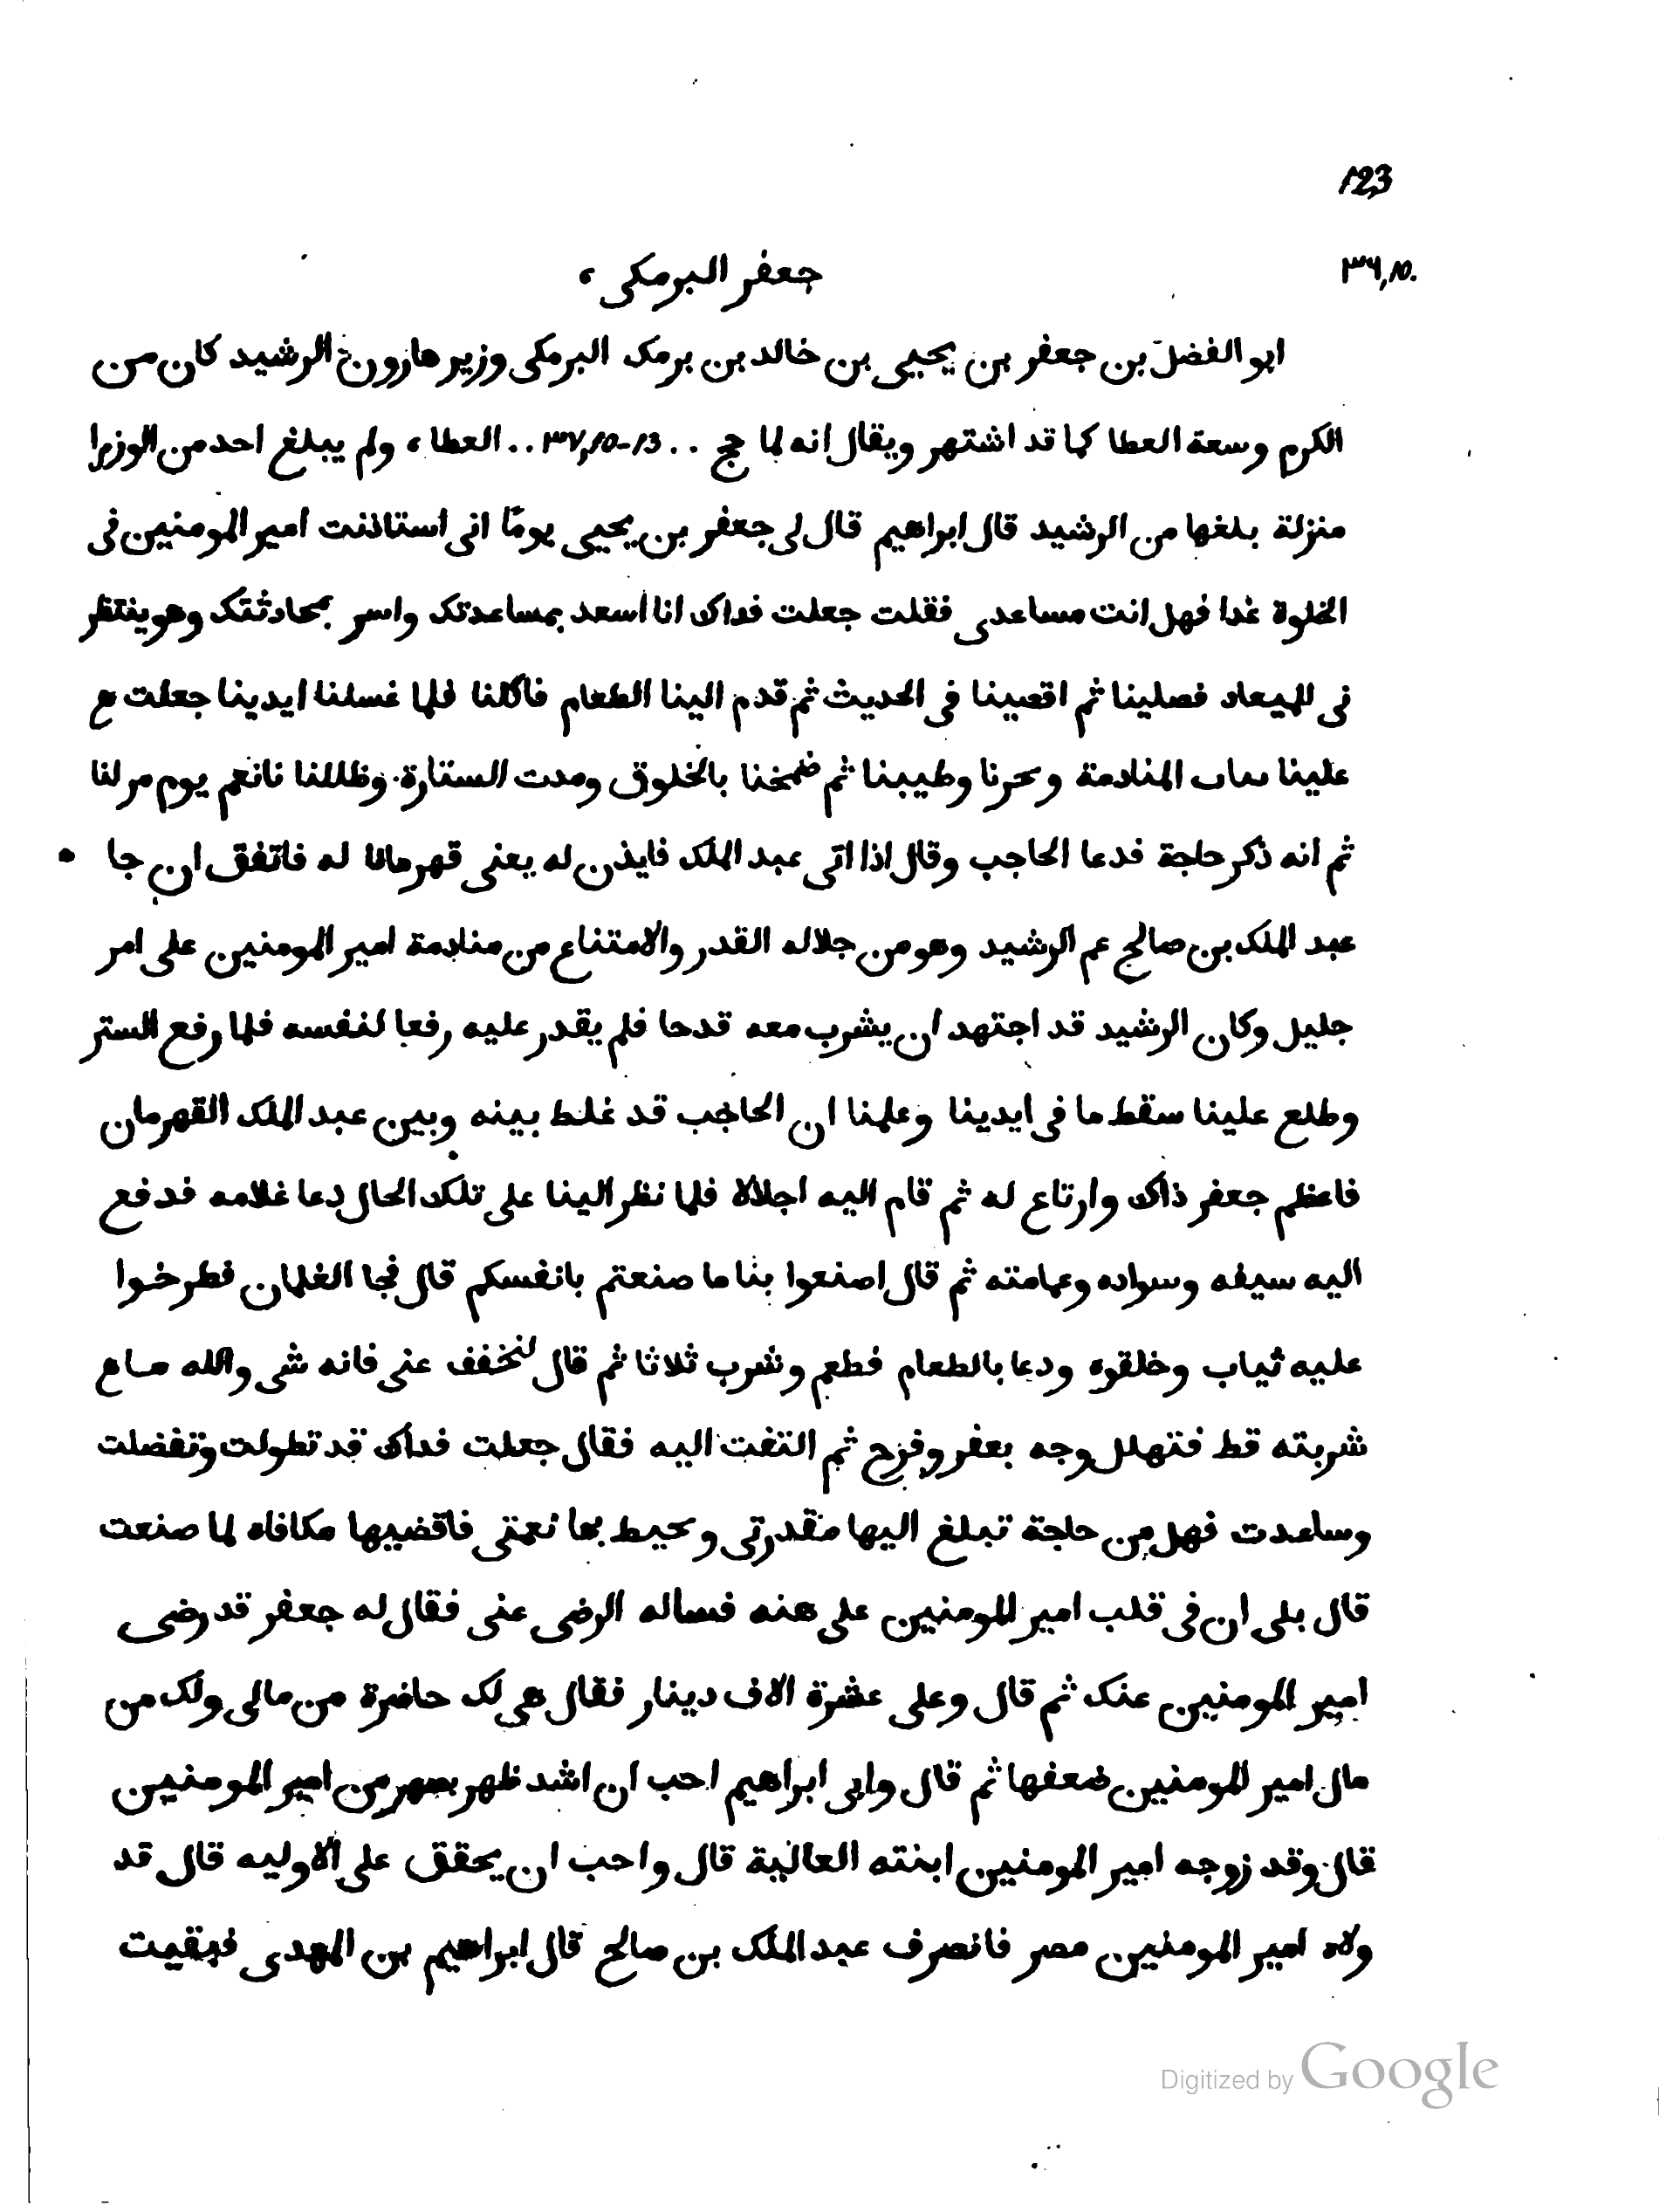 123
٣٦,١٥.
جعفر البرمكى ،
ابو الفضل بن جعفر بن يحيى بن خالد بن برمك البرمكى وزير هارون الرشيد كان من
الكرم وسعة العطا كما قد اشتهر ويقال انه لما حج . . ٣٧,١٥-١٣ . . العطا ، ولم يبلغ احد من الوزرا
منزلة بلغها من الرشيد قال ابراهيم قال لى جعفر بن يحيى يومًا انى استاذنت امير المومنين فى
الخلوة غدا فهل انت مساعدى فقلت جعلت فداك انا اسعد بمساعدتك واسر بمحادثتك وهو ينتظر
فى الميعاد فصلينا ثم اقصينا فى الحديث ثم قدم الينا الطعام فاكلنا فلما غسلنا ايدينا جعلت
علينا المنادمة وبحرنا وطيبنا ثم ضمخنا بالخلوق ومدت الستارة وظللنا نانعم يوم مر لنا
ثم انه ذكر حاجة فدعا الحاجب وقال اذا اتى عبد الملك فايذن له يعنى قهرمانا له فاتفق ان جا
عبد الملك بن صالح عم الرشيد وهو من جلاله القدر والامتناع من منادمة امير المومنين على امر
جليل وكان الرشيد قد اجتهد ان يشرب معه قدحا فلم يقدر عليه رفعا لنفسه فلما رفع الستر
وطلع علينا سقط ما فى ايدينا وعلمنا ان الحاجب قد غلط بينه وبين عبد الملك القهرمان
فاعظم جعفر ذاك وارتاع له ثم قام اليه اجلالا فلما نظر الينا على تلك الحال دعا غلامه فدفع
اليه سيفه وسواده وعمامته ثم قال اصنعوا بنا ما صنعتم بانفسكم قال فجا الغلمان فطرخوا
عليه ثياب وخلقوه ودعا بالطعام فطعم وشرب ثلاثا ثم قال لنخفف عنى فانه شى والله ما
شربته قط فتهلل وجه بعفر وفرح ثم التفت اليه فقال جعلت فداك قد تطولت وتفضلت
وساعدت فهل من حاجة تبلغ اليها مقدرتى وتحيط بها نعمتى فاقضيها مكافاه لما صنعت
قال بلى ان فى قلب امير المومنين على هنه فساله الرضى عنى فقال له جعفر قد رضى
امير المومنين عنك ثم قال وعلى عشرة الاف دينار فقال هى لك حاضرة من مالى ولك من
مال امير المومنين ضعفها ثم قال وابى ابراهيم احب ان اشد ظهر بصهر من امير المومنين
قال وقد زوجه امير المومنين ابنته العالية قال واحب ان يحقق على الاوليه قال قد
ولاه امير المومنين مصر فانصرف عبد الملك بن صالح قال ابراهيم بن المهدى فبقيت
Digitized by Google